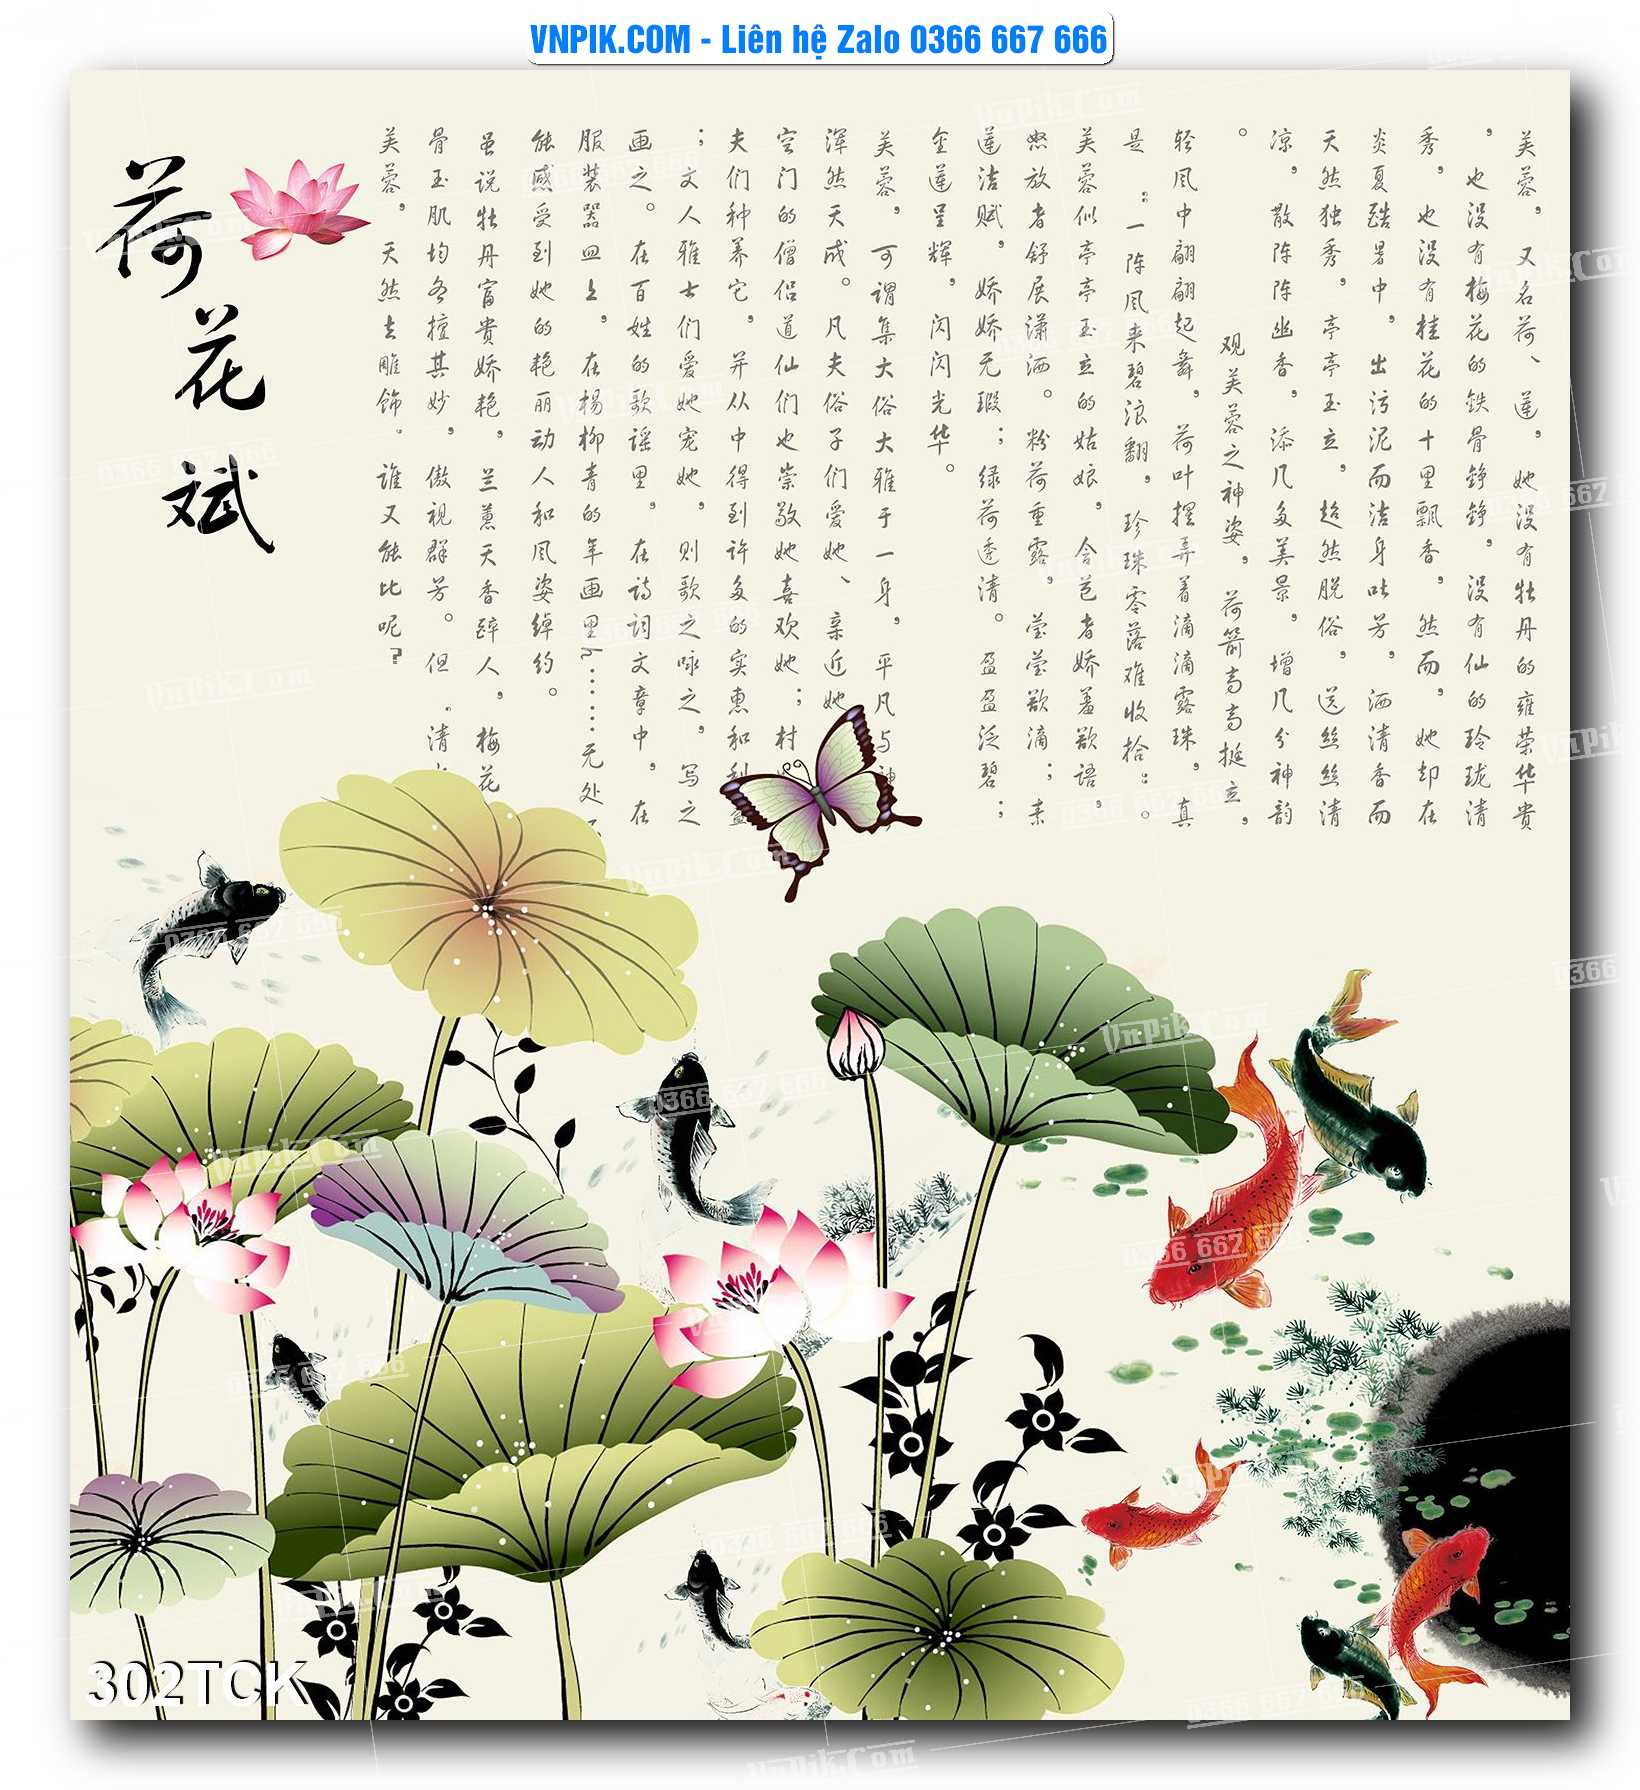 VNPIK.COM - Liên hệ Zalo 0366 667 666
荷花斌
芙蓉，又名荷、莲，她没有牡丹的雍荣华贵
，也没有梅花的铁骨铮铮，没有仙的玲珑清
秀，也没有桂花的十里飘香，然而，她却在
炎夏酷暑中，出污泥而洁身吐芳，洒清香而
天然独秀，亭亭玉立，超然脱俗，送丝丝清
凉，散阵阵幽香，添几多美景，增几分神韵
。
观芙蓉之神姿，荷箭高高挺立，
轻风中翩翩起舞，荷叶摆弄着滴滴露珠，真
是：一阵风来碧浪翻，珍珠零落难收拾。
芙蓉似亭亭玉立的姑娘，含苞者娇羞欲语，
怒放者舒展潇洒。粉荷垂露，莹莹欲滴；素
莲洁赋，娇娇无瑕；绿荷透清。盈盈泛碧；
金莲呈辉，闪闪光华。
芙蓉，可谓集大俗大雅于一身，平凡与神
浑然天成。凡夫俗子们爱她、亲近她
空门的僧侣道仙们也崇敬她喜欢她；村
夫们种养它，并从中得到许多的实惠和利益
；文人雅士们爱她宠她，则歌之咏之，写之
画之。在百姓的歌谣里，在诗词文章中，在
服装器皿上，在杨柳青的年画里h……无处不
能感受到她的艳丽动人和风姿绰约。
虽说牡丹富贵娇艳，兰蕙天香醉人，梅花
骨玉肌均各擅其妙，傲视群芳。但“清水
芙蓉，天然去雕饰。谁又能比呢？
302TCK
VnPik.Com
0366 667 666